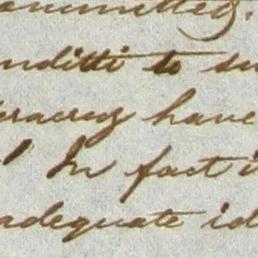 ommitted.
nditti to su
racruz have
! In fact i
adequate id